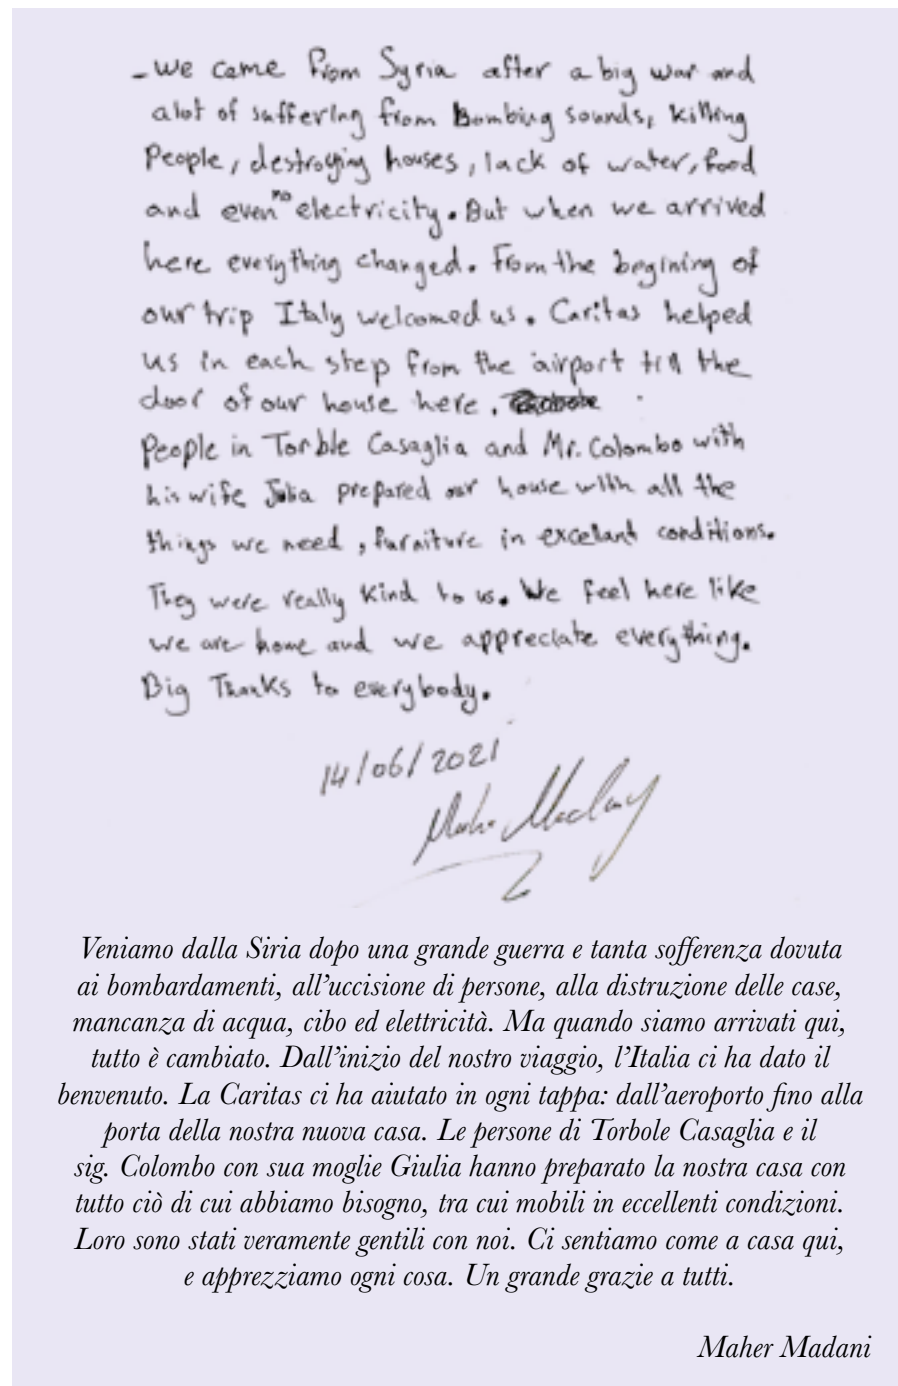 - we came from Syria after a big war and
alot of suffering from Bombing sounds, killing
People, destroying houses, lack of water, food
and even no electricity. But when we arrived
here everything changed. From the begining of
our trip Italy welcomed us. Caritas helped
us in each step from the airport till the
door of our house here.
People in Torble Casaglia and Mr. Colombo with
his wife Julia prepared our house with all the
things we need, furniture in excelant conditions.
They were really kind to us. We feel here like
we are home and we appreciate everything.
Big Thanks to everybody.
14/06/2021
Maher Madany
Veniamo dalla Siria dopo una grande guerra e tanta sofferenza dovuta
ai bombardamenti, all'uccisione di persone, alla distruzione delle case,
mancanza di acqua, cibo ed elettricità. Ma quando siamo arrivati qui,
tutto è cambiato. Dall'inizio del nostro viaggio, l'Italia ci ha dato il
benvenuto. La Caritas ci ha aiutato in ogni tappa: dall'aeroporto fino alla
porta della nostra nuova casa. Le persone di Torbole Casaglia e il
sig. Colombo con sua moglie Giulia hanno preparato la nostra casa con
tutto ciò di cui abbiamo bisogno, tra cui mobili in eccellenti condizioni.
Loro sono stati veramente gentili con noi. Ci sentiamo come a casa qui,
e apprezziamo ogni cosa. Un grande grazie a tutti.
Maher Madani